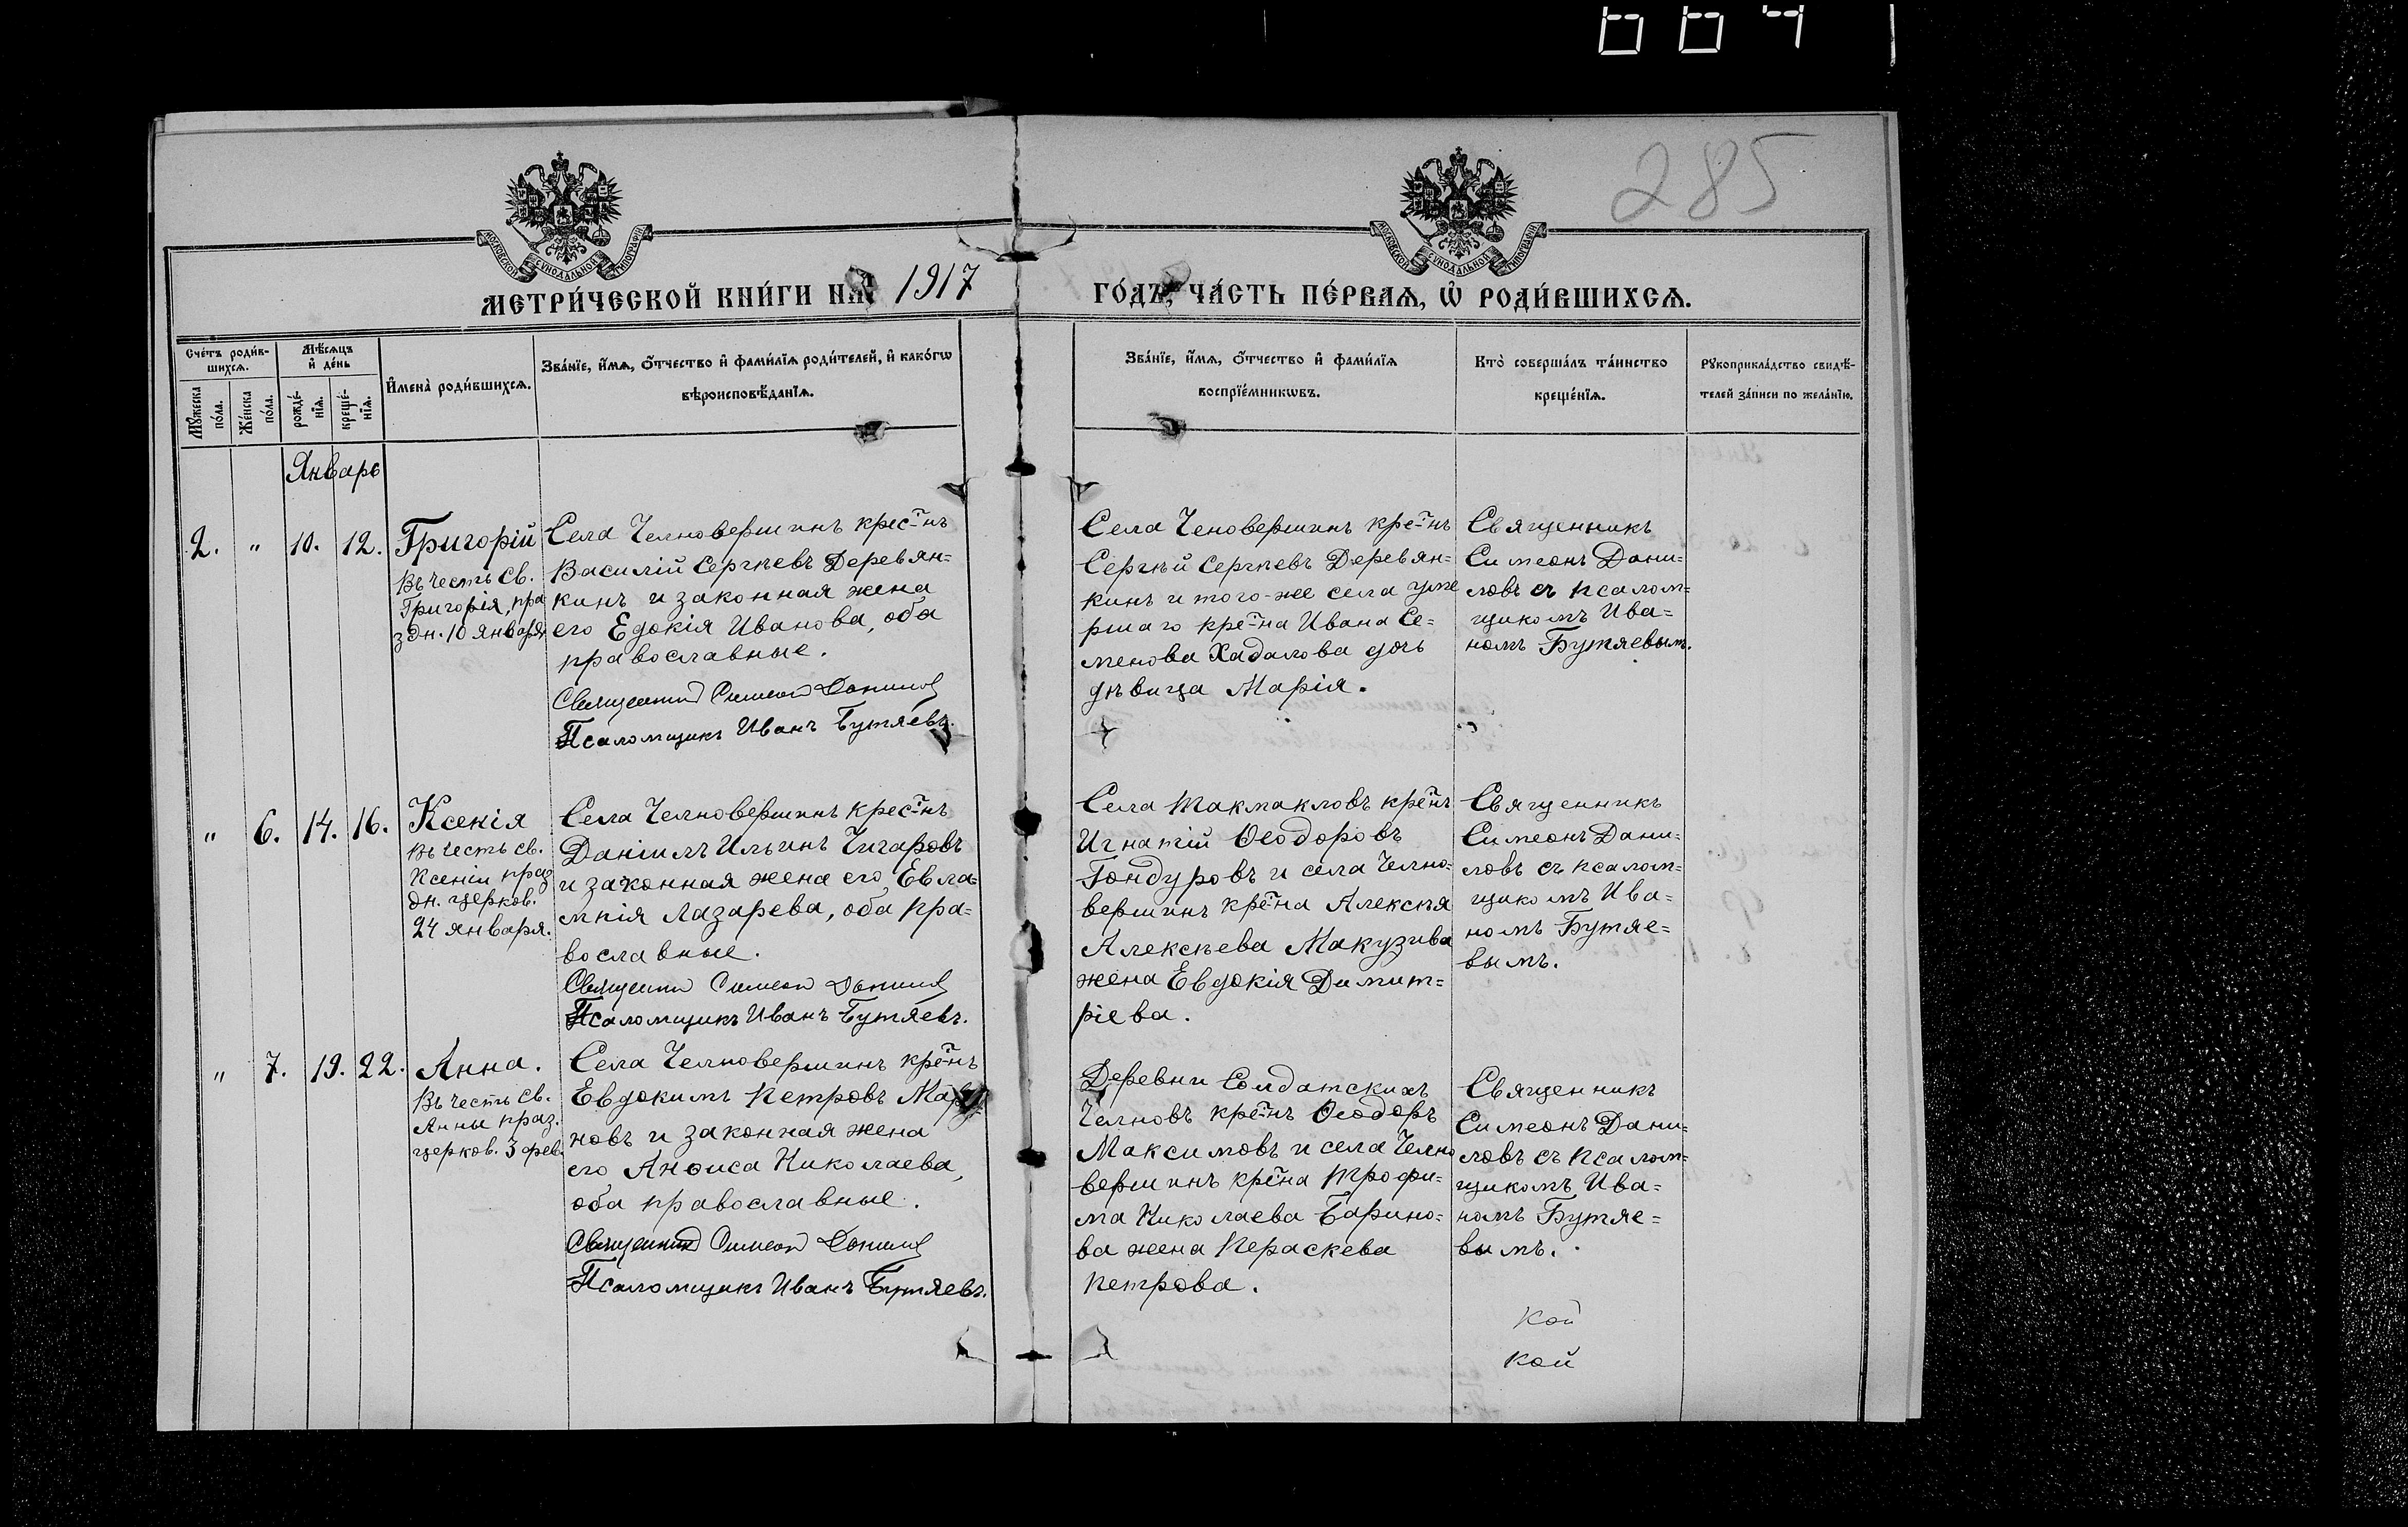 285
МОСКОВСКОЙ СѴНОДАЛЬНОЙ ТИПОГРАФІИ
МОСКОВСКОЙ СѴНОДАЛЬНОЙ ТИПОГРАФІИ
МЕТРИ́ЧЕСКОЙ КНИ́ГИ НА 1917 ГО́ДЪ, ЧА́СТЬ ПЕ́РВАѦ, Ѡ҆ РОДИ́ВШИХСѦ.
Сче́тъ роди́в-
шихсѧ.
Мꙋ́жеска
по́ла.
Же́нска
по́ла.
Мѣ́сѧцъ
и҆ де́нь
рожде́-
нїѧ.
креще́-
нїѧ.
И҆мена̀ роди́вшихсѧ.
Зва́нїе, и҆́мѧ, ѻ҆́тчество и҆ фами́лїѧ роди́телей, и҆ како́гѡ
вѣроисповѣ́данїѧ.
Зва́нїе, и҆́мѧ, ѻ҆́тчество и҆ фами́лїѧ
воспрїе́мникѡвъ.
Кто̀ соверша́лъ та́инство
креще́нїѧ.
Рꙋкоприкла́дство свидѣ́-
телей за́писи по жела́нїю.
Январь
2. " 10. 12.
Григорій
Въ честь св.
Григорія, пра
здн. 10 января
Села Челновершинъ крес-нъ
Василій Сергѣевъ Деревян=
кинъ и законная жена
его Едокія Иванова, оба
православные.
Священник Симеон Данилов
Псаломщикъ Иванъ Бутяевъ.
Села Ченовершинъ кре-нъ
Сергѣй Сергѣевъ Деревян=
кинъ и того-же села уме
ршаго кре-на Ивана Се=
менова Хадалова дочь
дѣвица Марія.
Священникъ
Симеонъ Дани=
ловъ съ псалом=
щикомъ Ива=
номъ Бутяевымъ.
" 6. 14. 16.
Ксенія
Въ честь св.
Ксеніи праз
дн. церков.
24 января.
Села Челновершинъ крес-нъ
Даніилъ Ильинъ Чигаровъ
и законная жена его Евла=
мпія Лазарева, оба пра=
вославные.
Священник Симеон Данилов
Псаломщикъ Иванъ Бутяевъ.
Села Токмакловъ кре-нъ
Игнатій Ѳеодоровъ
Гондуровъ и села Челно=
вершинъ кре-на Алексѣя
Алексѣева Макузива
жена Евдокія Димит=
ріева.
Священникъ
Симеонъ Дани=
ловъ съ псалом=
щикомъ Ива=
номъ Бутяе=
вымъ.
" 7. 19. 22.
Анна.
Въ честь св.
Анны праз.
церков. 3 фев.
Села Челновершинъ кре-нъ
Евдокимъ Петровъ
новъ и законная жена
его Анѳиса Николаева,
оба православные.
Священник Симеон Данилов
Псаломщикъ Иванъ Бутяевъ.
Деревни Солдатскихъ
Челновъ кре-нъ Ѳеодоръ
Максимовъ и села Челно
вершинъ кре-на Трофи=
ма Николаева Барино=
ва жена Пераскева
Петрова.
Священникъ
Симеонъ Дани=
ловъ съ псалом=
щикомъ Ива=
номъ Бутяе=
вымъ.
кой
кой